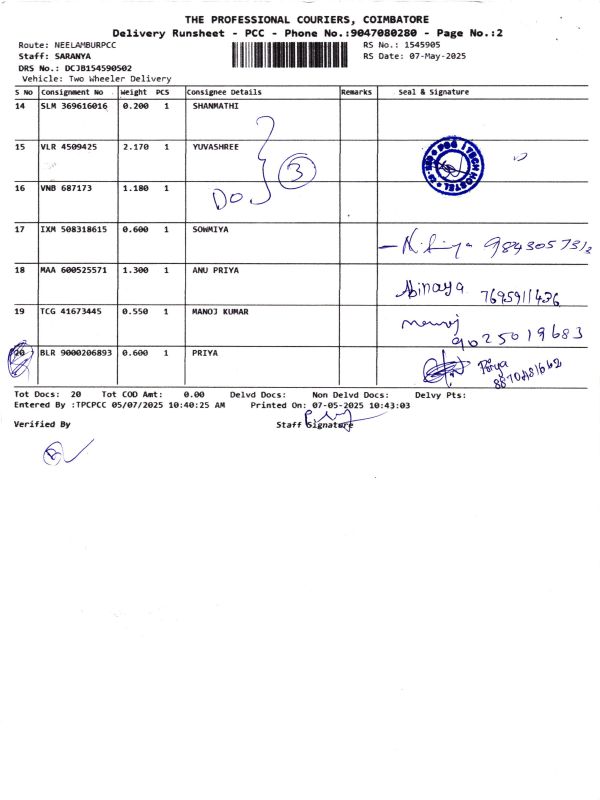 THE PROFESSIONAL COURIERS, COIMBATORE
Delivery Runsheet - PCC - Phone No.:9047080280 - Page No.:2
Route: NEELAMBURPCC RS No.: 1545905
Staff: SARANYA RS Date: 07-May-2025
DRS No.: DCJB154590502
Vehicle: Two Wheeler Delivery
S NO Consignment No Weight PCS Consignee Details Remarks Seal & Signature
14 SLM 369616016 0.200 1 SHANMATHI
15 VLR 4509425 2.170 1 YUVASHREE
3
16 VNB 687173 1.180 1
DO
17 IXM 508318615 0.600 1 SOWMIYA
18 MAA 600525571 1.300 1 ANU PRIYA
Abinaya 7695911436
19 TCG 41673445 0.550 1 MANOJ KUMAR
manoj
9025019683
20 BLR 9000206893 0.600 1 PRIYA
Priya
Tot Docs: 20 Tot COD Amt: 0.00 Delvd Docs: Non Delvd Docs: Delvy Pts:
Entered By :TPCPCC 05/07/2025 10:40:25 AM Printed On: 07-05-2025 10:43:03
Verified By Staff Signature